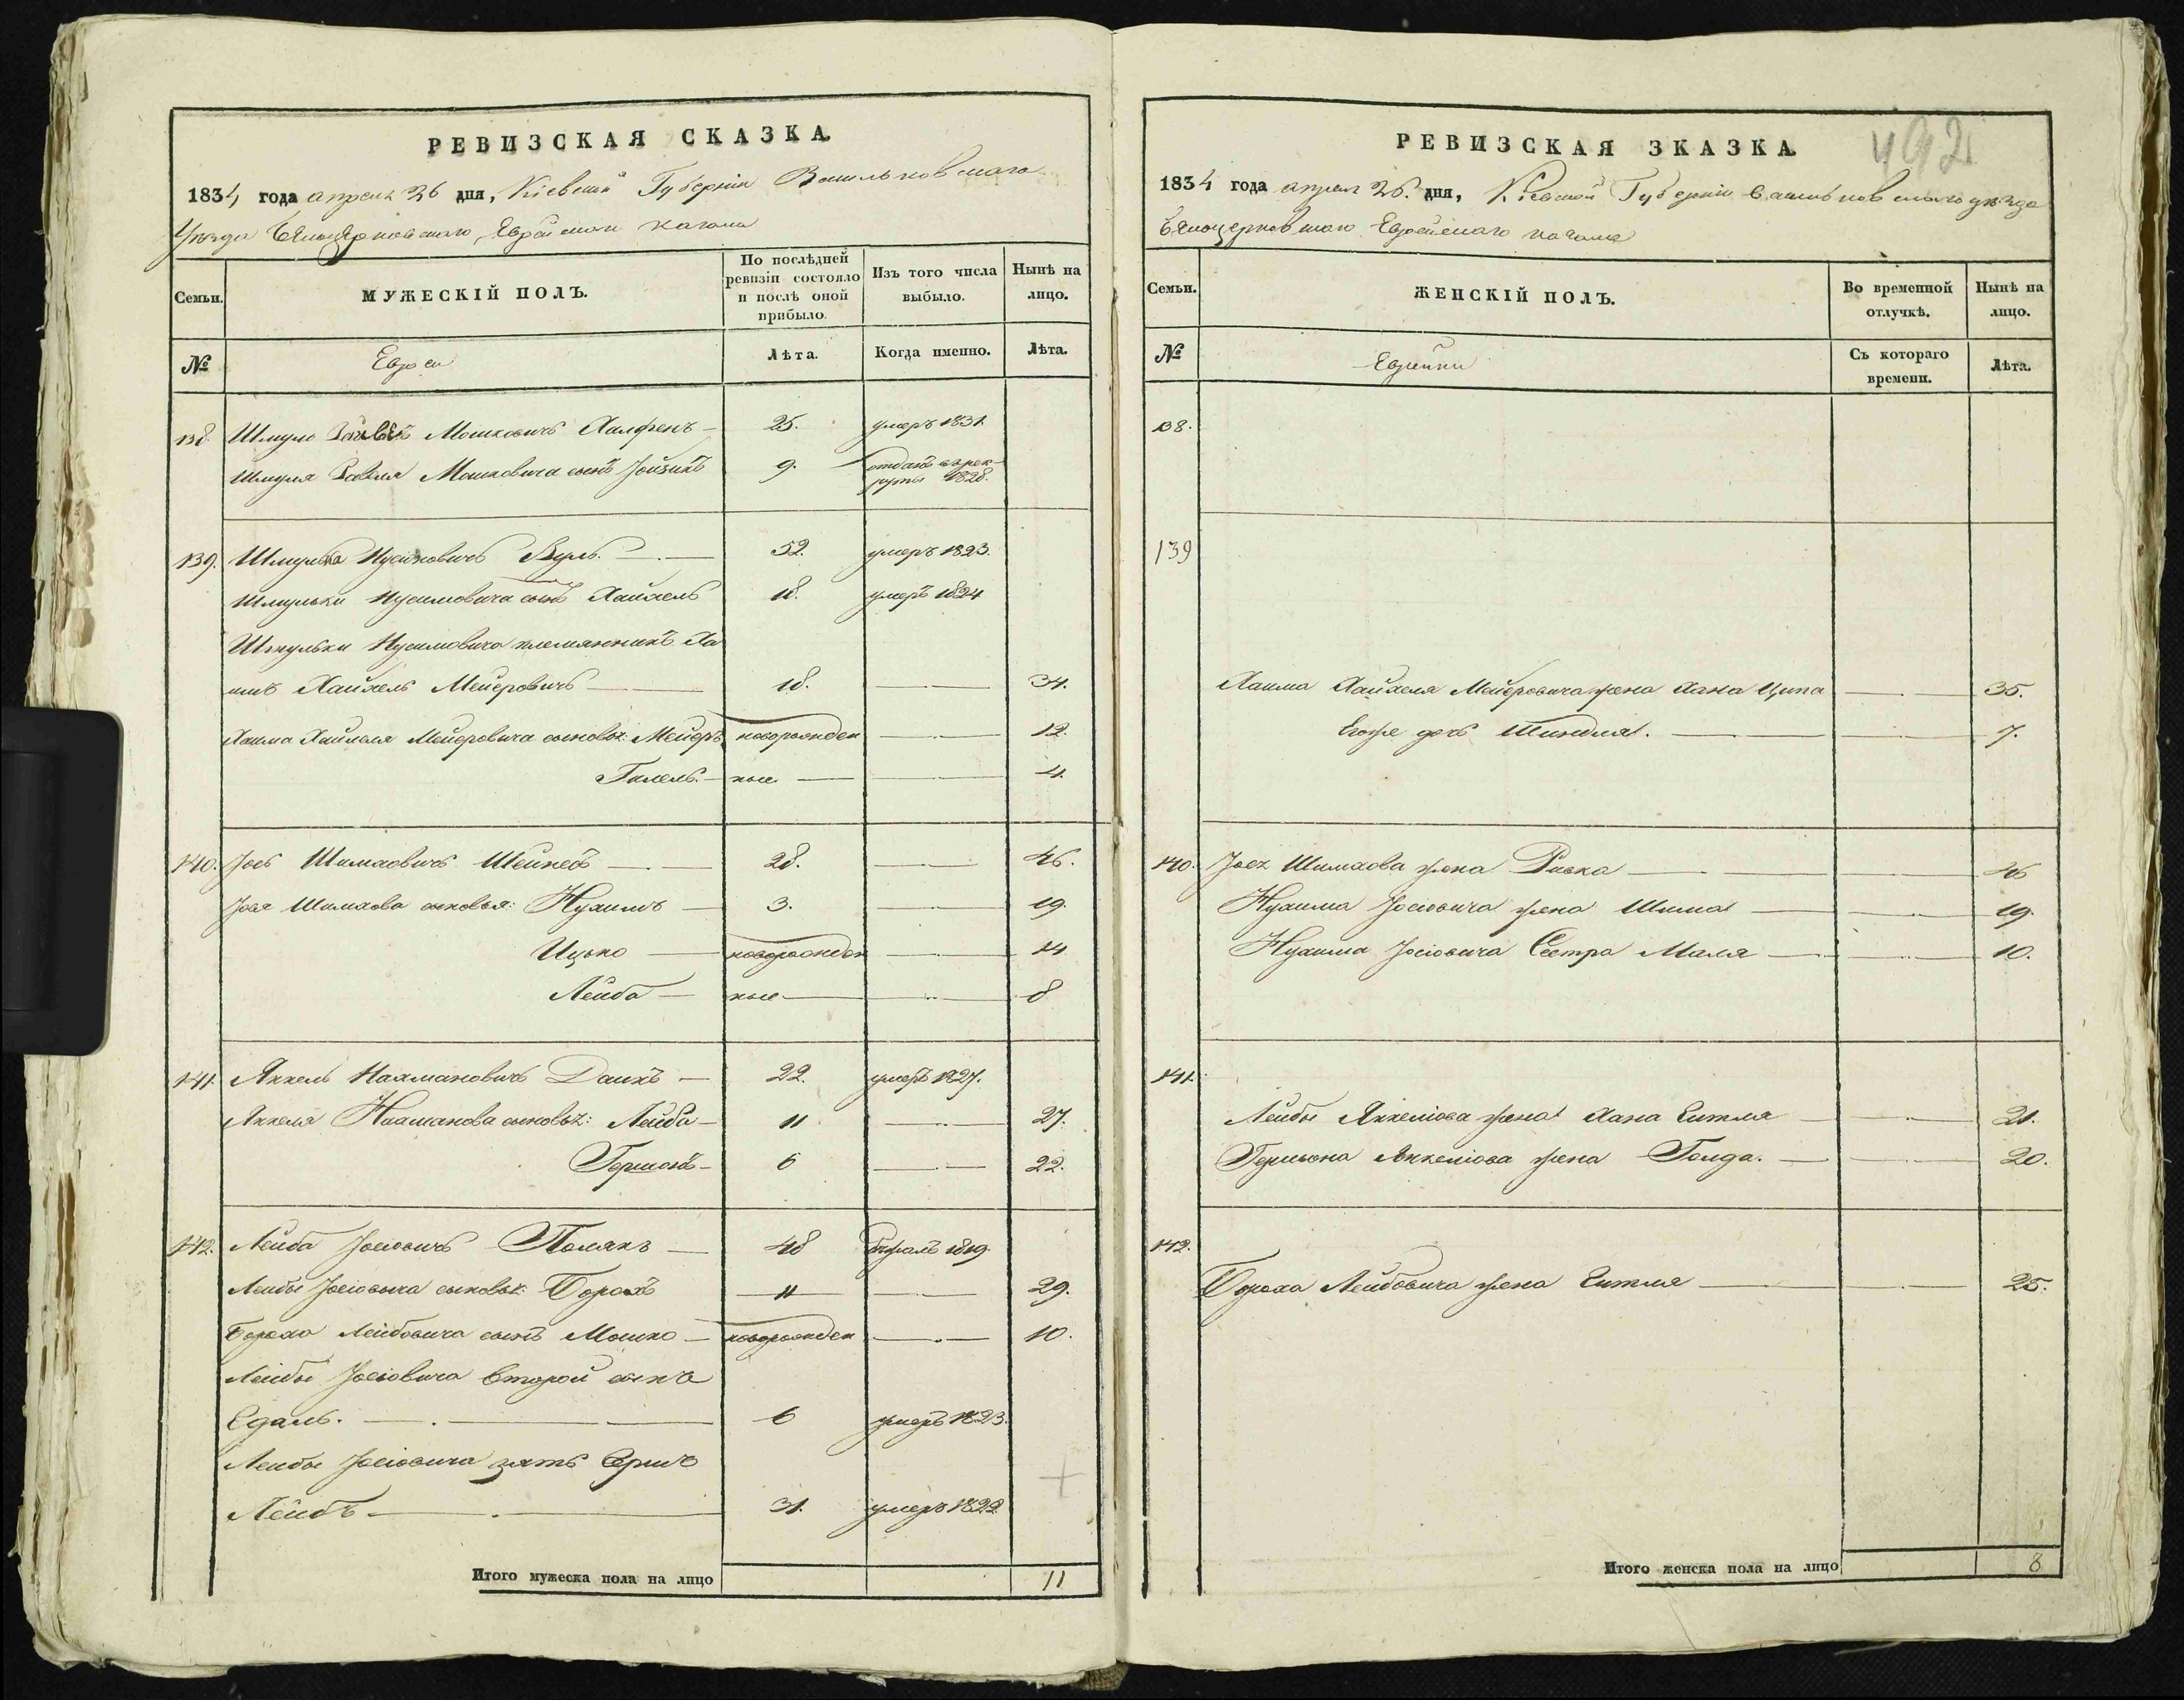 РЕВИЗСКАЯ СКАЗКА.
1834 года апреля 26 дня, Кіевской Губерніи Васильковскаго
Уѣзда Бѣлоцерковскаго Еврейскаго кагала
Семьи.
МУЖЕСКІЙ ПОЛЪ.
По послѣдней ревизіи состояло и послѣ оной прибыло.
Изъ того числа выбыло.
Нынѣ на лицо.
№
Евреи
Лѣта.
Когда именно.
Лѣта.
138. Шмуль Мошковичъ Халфенъ — 25. умеръ 1831.
Шмуля Мошковича сынъ Іойзикъ 9. отданъ въ рек-
руты 1828.
139. Шмулька Нусимовичъ — 52. умеръ 1823.
Шмульки Нусимовича сынъ Хайкель 18. умеръ 1824
Шмульки Нусимовича племянникъ Ха
имъ Хайкель Мейеровичъ — 18. — 34.
Хаима Хайкеля Мейеровича сыновья: Мейеръ новорожден — 12.
Гилель. — ные — 4.
140. Іось Шимховичъ Шейнеръ — 28. — 46.
Іося Шимхова сыновья: Нухимъ — 3. — 19.
Ицько — новорожден — 14
Лейба — ные — 8
141. Янкель Нахмановичъ — 22. умеръ 1827.
Янкеля Нахманова сыновья: Лейба — 11 — 27.
Гершонъ — 6 — 22.
142. Лейба Іосіовичъ Полякъ — 48 бѣжалъ 1819.
Лейбы Іосіовича сыновья: Борохъ — 11 — 29.
Бороха Лейбовича сынъ Мошко — новорожден — 10.
Лейбы Іосіовича второй сынъ
— 6 умеръ 1823.
Лейбы Іосіовича зять Сруль
Лейбъ — 31. умеръ 1822
Итого мужеска пола на лицо 11
492
РЕВИЗСКАЯ ЗКАЗКА.
1834 года апреля 26. дня, Кіевской Губерніи Васильковскаго уѣзда
Бѣлоцерковскаго Еврейскаго кагала
Семьи.
ЖЕНСКІЙ ПОЛЪ.
Во временной отлучкѣ.
Нынѣ на лицо.
№
Еврейки
Съ котораго времени.
Лѣта.
138.
139
Хаима Хайкеля Мейеровича жена Хана Ципа — 35.
Егоже дочь Шиндля. — 7.
140. Іося Шимхова жена Ривка — 46
Нухима Іосіовича жена Шима — 19.
Нухима Іосіовича Сестра Маля — 10.
141.
Лейбы Янкеліова жена Хана Ентля — 21.
Гершона Янкеліова жена Голда. — 20.
142.
Бороха Лейбовича жена Ентля — 25.
Итого женска пола на лицо 8